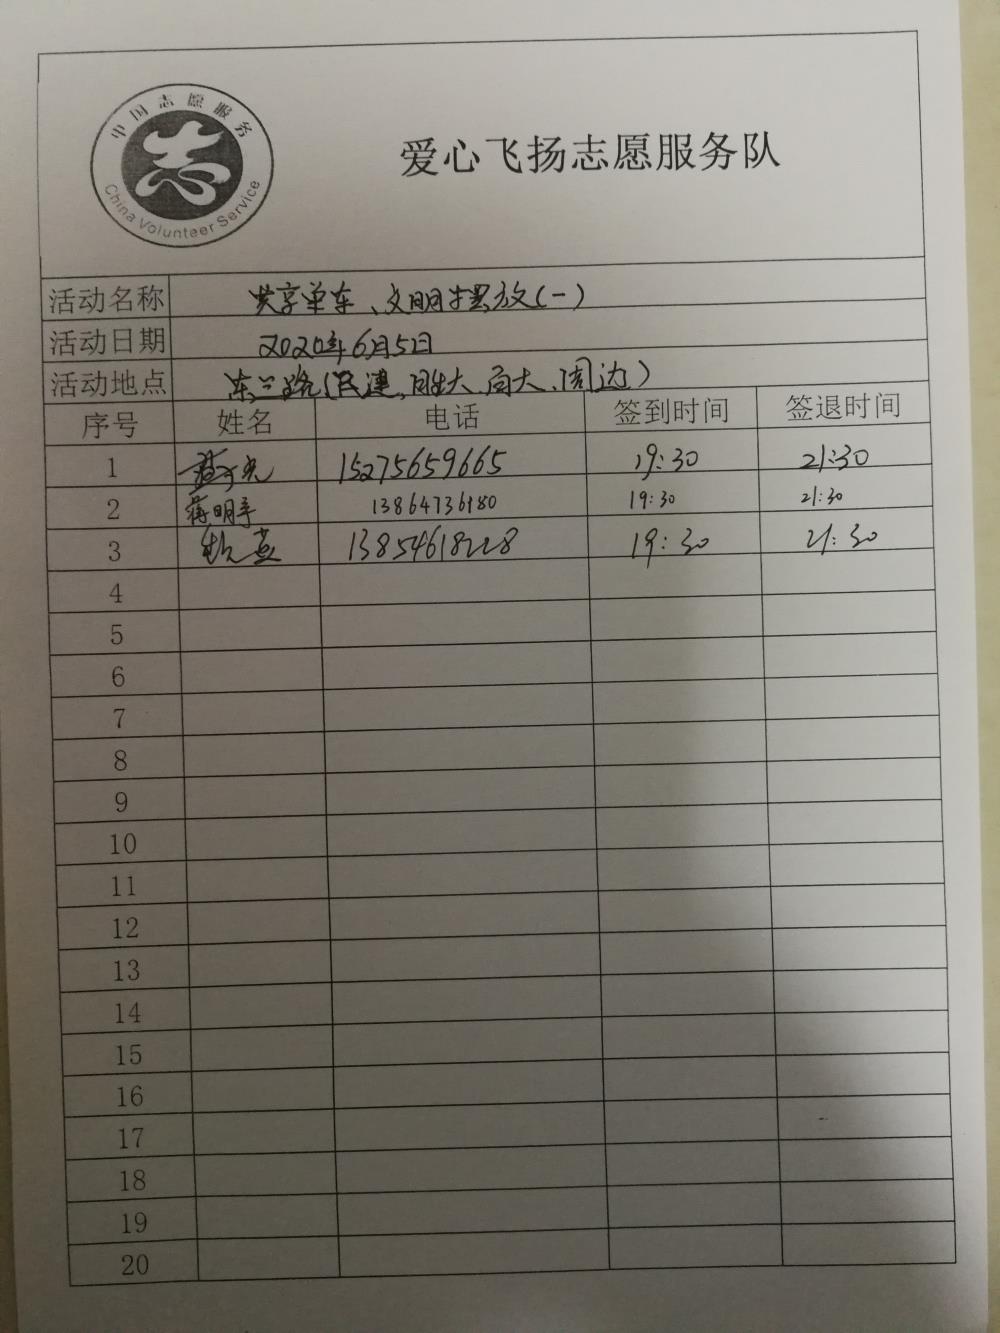 中国志愿服务
志
China Volunteer Service
爱心飞扬志愿服务队
活动名称 共享单车、文明摆放(一)
活动日期 2020年6月5日
活动地点 东三路(民建,胜大,商大、周边)
序号 姓名 电话 签到时间 签退时间
1 15275659665 19:30 21:30
2 蒋明亭 13864736180 19:30 21:30
3 13854618228 19:30 21:30
4
5
6
7
8
9
10
11
12
13
14
15
16
17
18
19
20